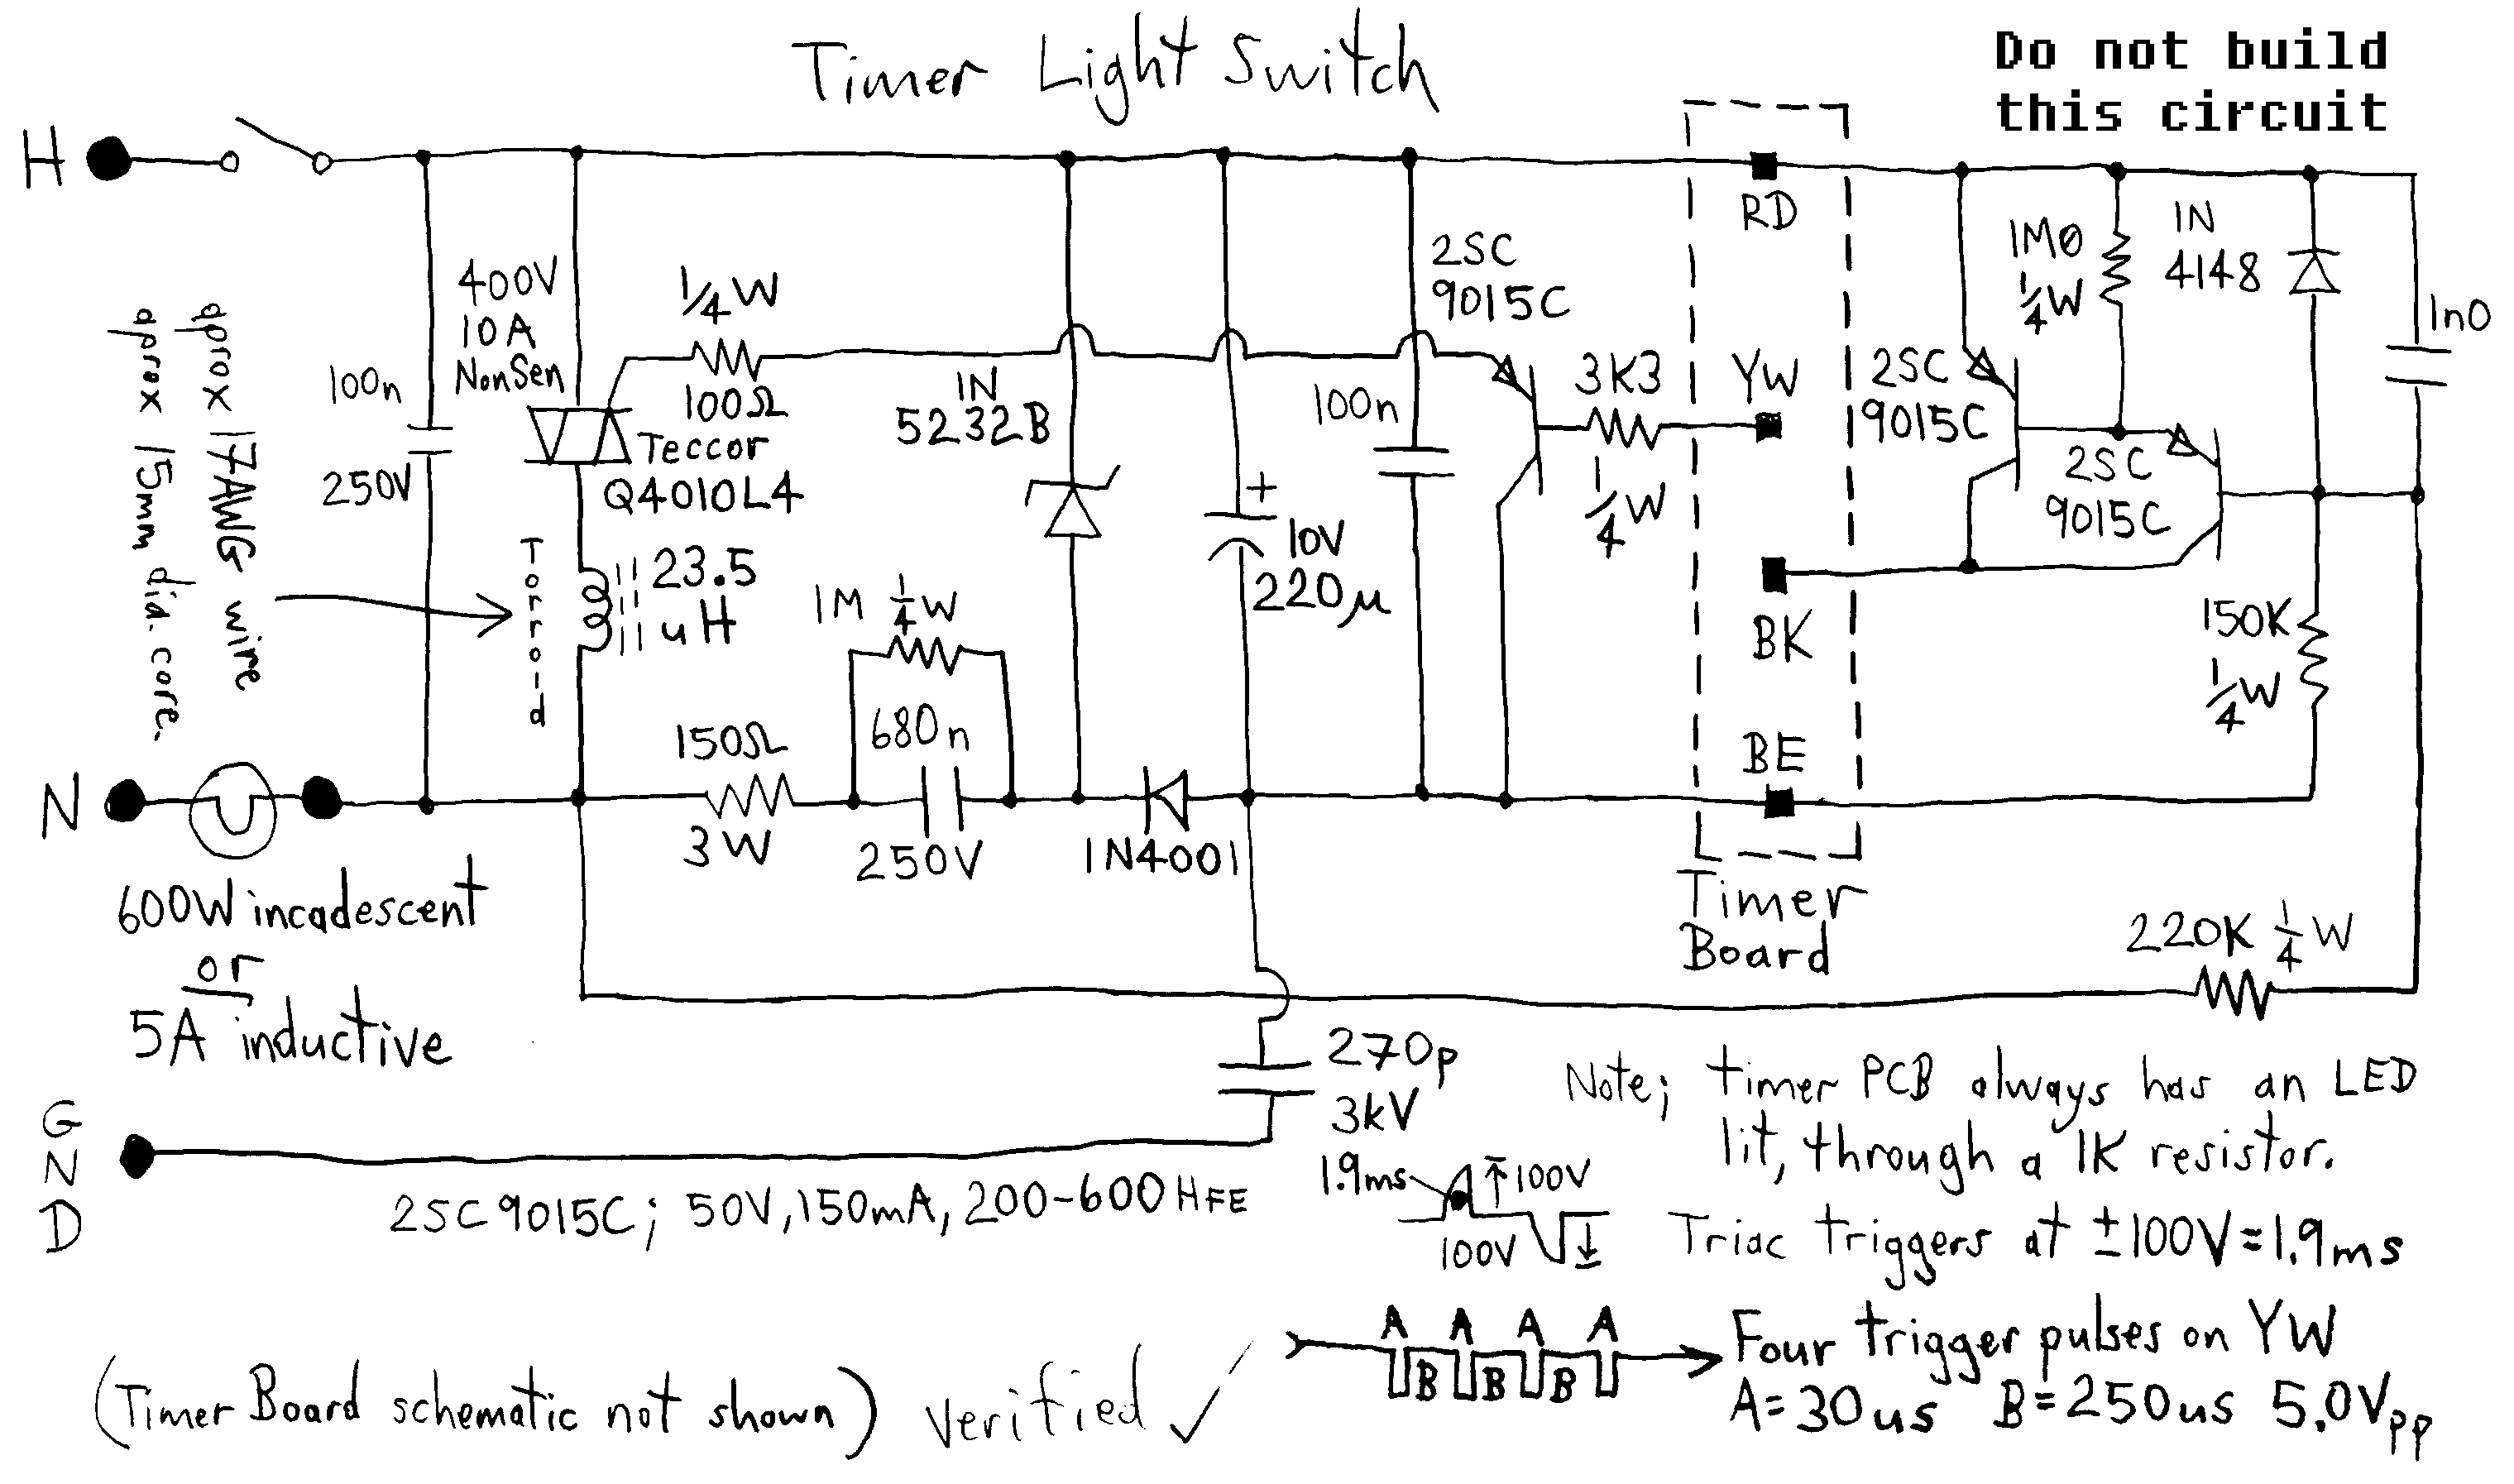 Timer Light Switch
Do not build
this circuit
H
RD
2SC
9015C
1M0
1/4W
IN
4148
1n0
400V
10A
NonSen
1/4W
100Ω
Teccor
Q4010L4
100n
250V
aprox 17AWG wire
aprox 15mm dia. core.
Toroid
23.5
uH
IN
5232B
+
10V
220µ
100n
3K3
1/4W
YW
2SC
9015C
2SC
9015C
BK
150K
1/4W
1M 1/4W
680n
250V
150Ω
3W
1N4001
BE
N
600W incadescent
or
5A inductive
Timer
Board
220K 1/4W
270p
3kV
GND
Note; timer PCB always has an LED
lit, through a 1K resistor.
2SC9015C; 50V, 150mA, 200-600 HFE
1.9ms
100V
100V
Triac triggers at ±100V=1.9ms
A A A A
B B B
Four trigger pulses on YW
A=30us B=250us 5.0Vpp
(Timer Board schematic not shown) Verified ✓